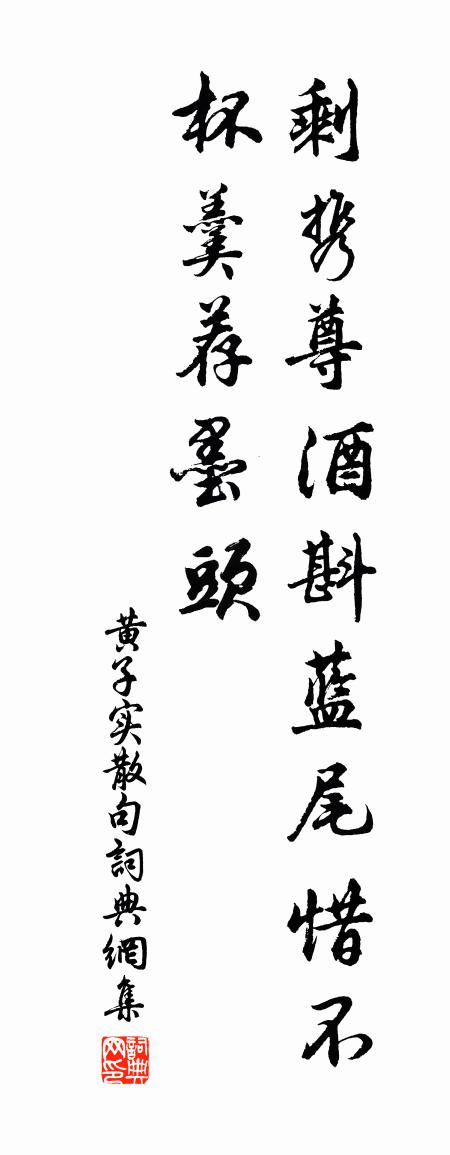 剩携尊酒斟藍尾惜不
杯羹荐墨頭
黄子实散句詞典網集
詞典网印